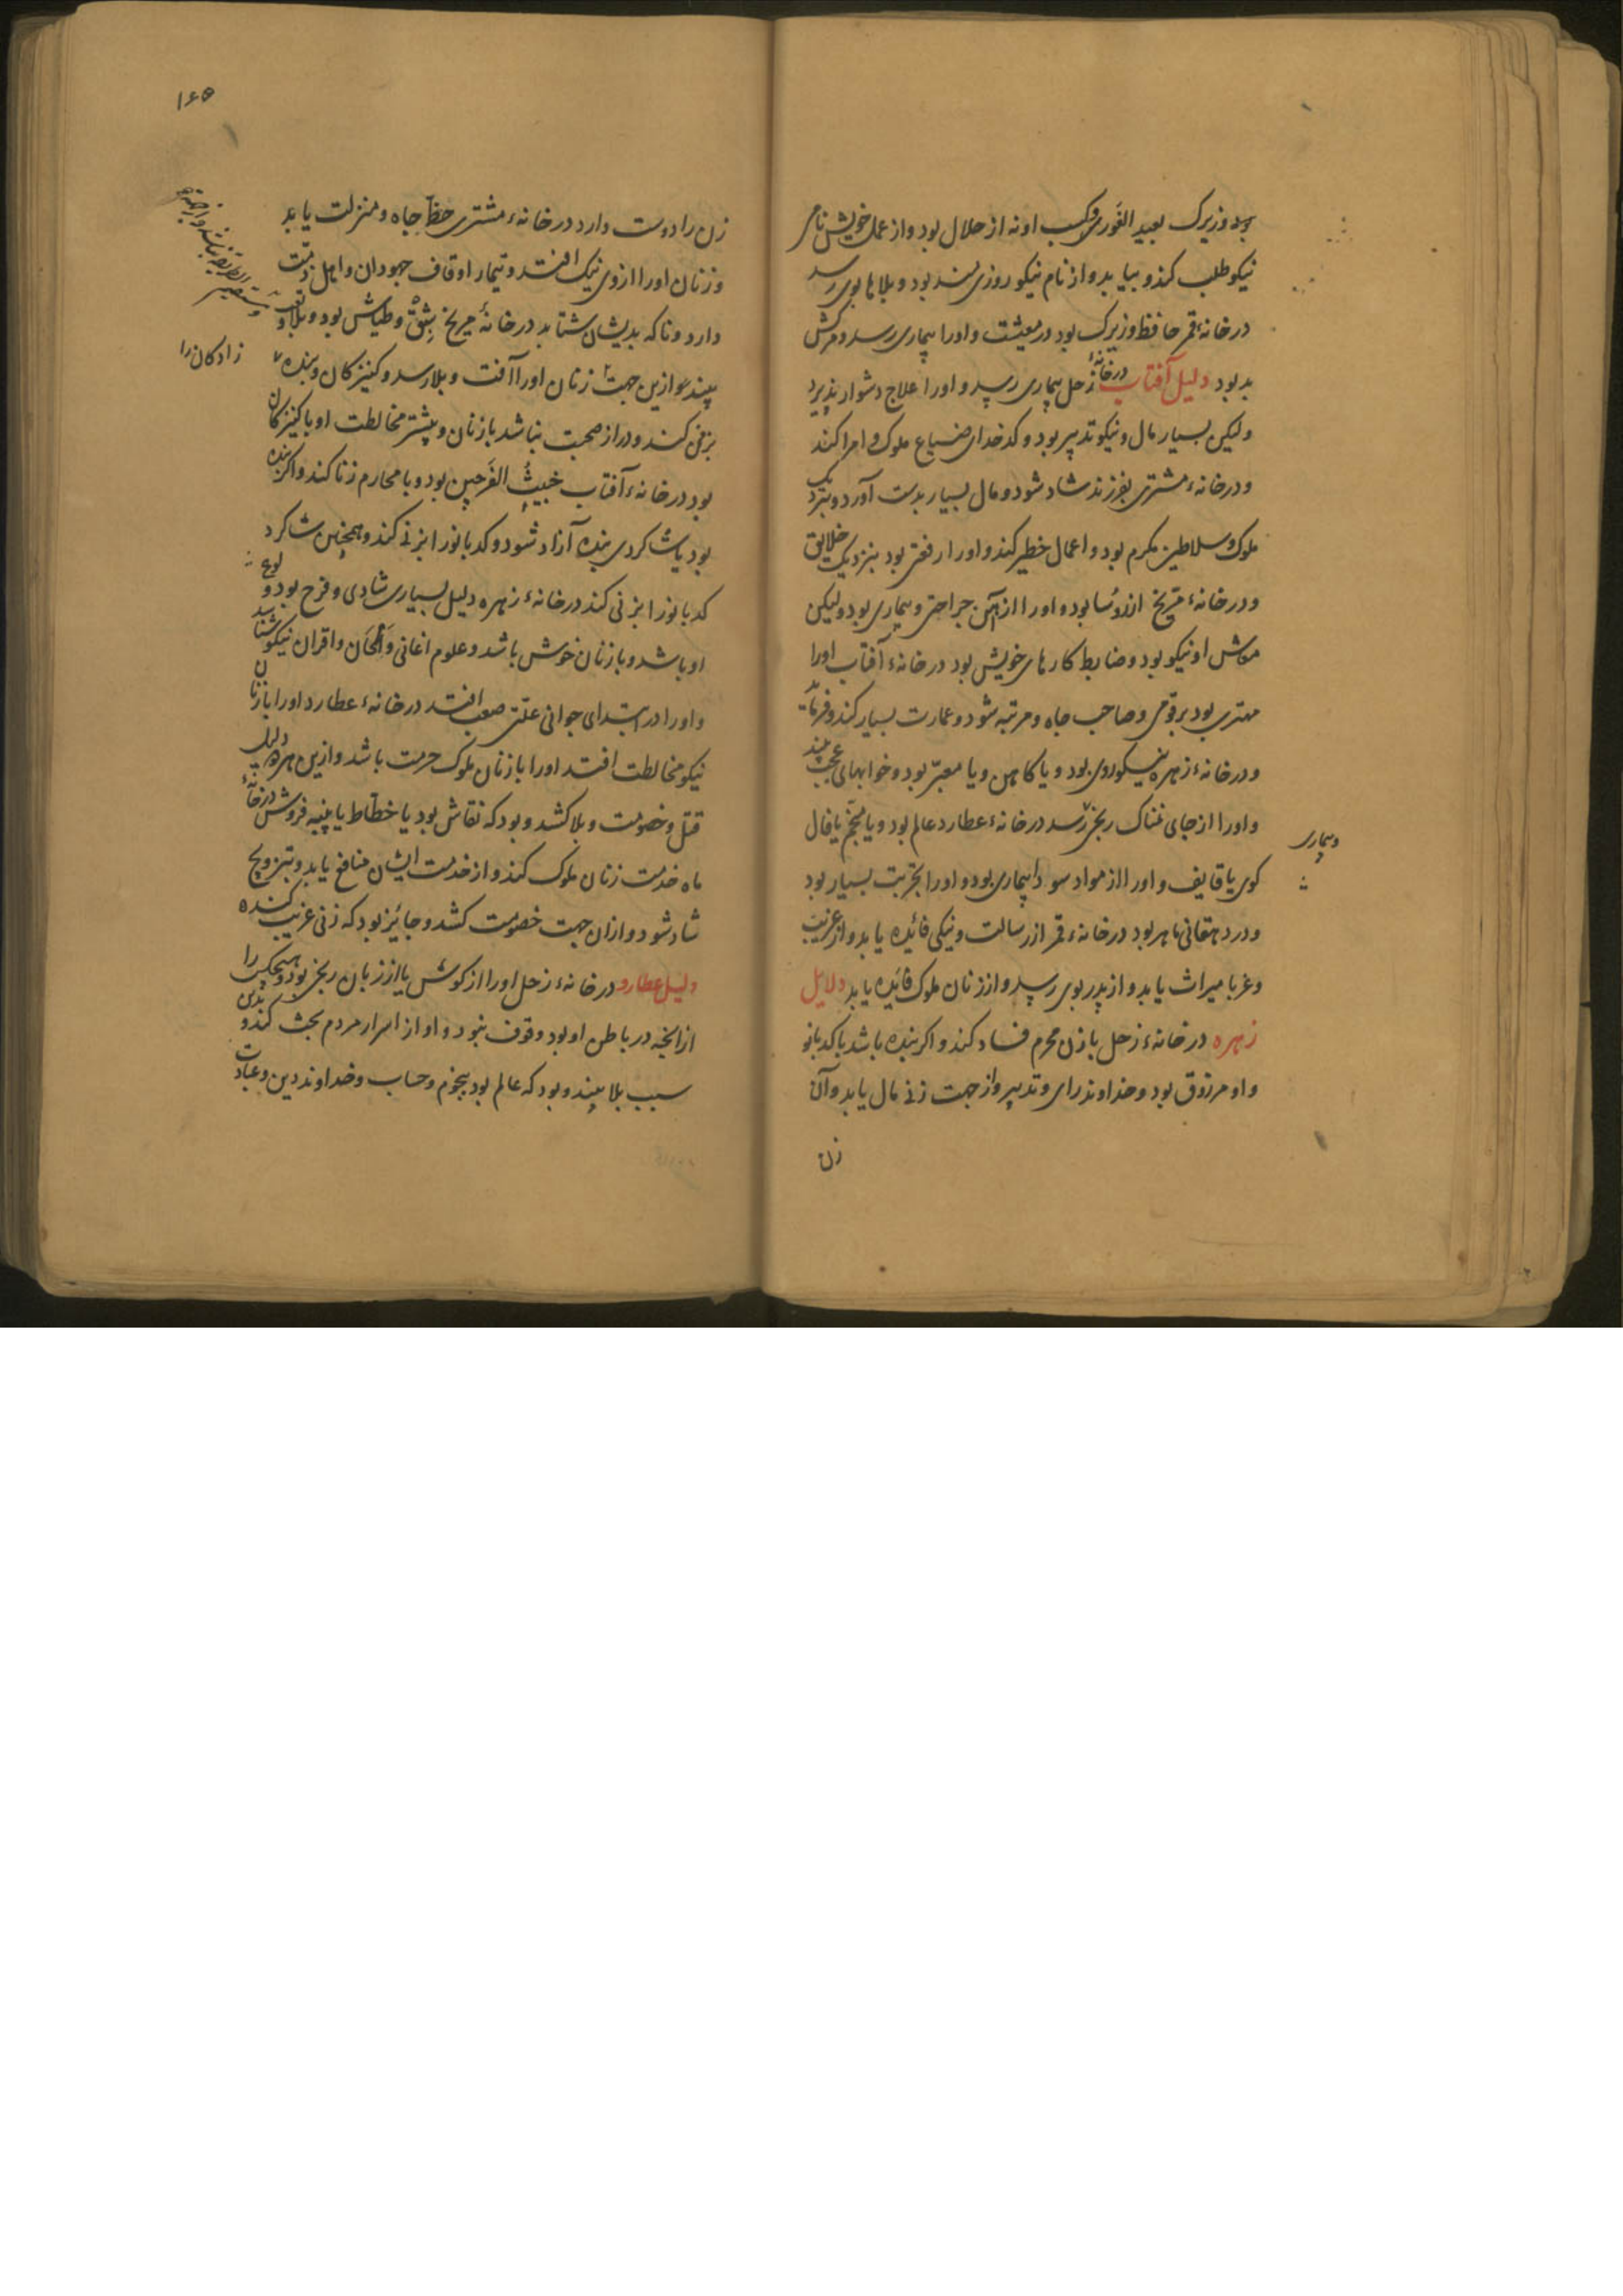 بود وزیرک بعید الغوری و کسب او نه از حلال بود و از عمل خویش نامی
نیکو طلب کند و بیابد و از نام نیکو روزی‌مند بود و بلاها بوی رسد
در خانهٔ قمر حافظ وزیرک بود در معیشت و اورا بیماری رسد و مرگش
بد بود دلیل آفتاب در خانهٔ زحل بیماری رسد و اورا علاج دشوار پذیرد
ولیکن بسیار مال و نیکو تدبیر بود و کدخدای ضیاع ملوک و امرا کند
و در خانهٔ مشتری بفرزند شاد شود و مال بسیار بدست آورد و بنزدیک
ملوک و سلاطین مکرم بود و اعمال خطیر کند و اورا رفعتی بود بنزدیک خلایق
و در خانهٔ مریخ از رؤسا بود و اورا از آهن جراحتی و بیماری بود ولیکن
معاش او نیکو بود و ضابط کارهای خویش بود در خانهٔ آفتاب اورا
مهتری بود بر قومی و صاحب جاه و مرتبه شود و عمارت بسیار کند و فرماید
و در خانهٔ زهره نیکوروی بود و یا کاهن و یا معبّر بود و خوابهای عجب بیند
و اورا از جای نمناک رنجی رسد در خانهٔ عطارد عالم بود و یا منجّم یا فال
وبیماری
کوی یا قایف و اورا از مواد سودا بیماری بود و اورا تجربت بسیار بود
و در دهقانی ماهر بود در خانهٔ قمر از رسالت و نیکی فائده یابد و از غربت
و غربا میراث یابد و از پدر بوی رسد و از زنان ملوک فائده یابد دلایل
زهره در خانهٔ زحل با زن محرم فساد کند و اکر بنده باشد با کدبانو
و او مرزوق بود و خداوند رای و تدبیر و از جهت زنی مال یابد و آن
زن
۱۶۵
زن را دوست دارد در خانهٔ مشتری حظّ جاه و منزلت یابد
و زنان اورا از وی نیک افتد و تیمار اوقاف جهودان و اهل ذمّت
دارد و تا که بدیشان شتابد در خانهٔ مریخ شبق و طیاش بود و بلا و تعب
بیند و ازین جهت زنان اورا آفت و بلا رسد و کنیزکان و بنده
زادکان را
بزنی کند و دراز صحبت نباشد با زنان و بیشتر مخالطت او با کنیزکان
بود در خانهٔ آفتاب خبیث الفرجین بود و با محارم زنا کند و اکر بنده
بود یا شاکردی بنده آزاد شود و کدبانو را بزنی کند و همچنین شاکرد
کدبانو را بزنی کند در خانهٔ زهره دلیل بسیاری شادی و فرح بود و
او باشد و با زنان خوش باشد و علوم اغانی و الحان و اقران نیکو شناسد
و اورا در ابتدای جوانی علّتی صعب افتد در خانهٔ عطارد اورا با زنان
نیکو مخالطت افتد اورا با زنان ملوک حرمت باشد و ازین بهره دلیل
قتل و خصومت و بلا کشد و بود که نقاش بود یا خطّاط یا پنبه فروش در خانهٔ
ماه خدمت زنان ملوک کند و از خدمت ایشان منافع یابد و بتزویج
شاد شود و ازان جهت خصومت کشد و جائیز بود که زنی غریب کننده
دلیل عطارد در خانهٔ زحل اورا از کوش یا از زبان رنجی بود و هیچکس را
از انچه در باطن او بود وقوف نبود و او از اسرار مردم بحث کند و بدین
سبب بلا بیند و بود که عالم بود بنجوم و حساب و خداوند دین و عبادت